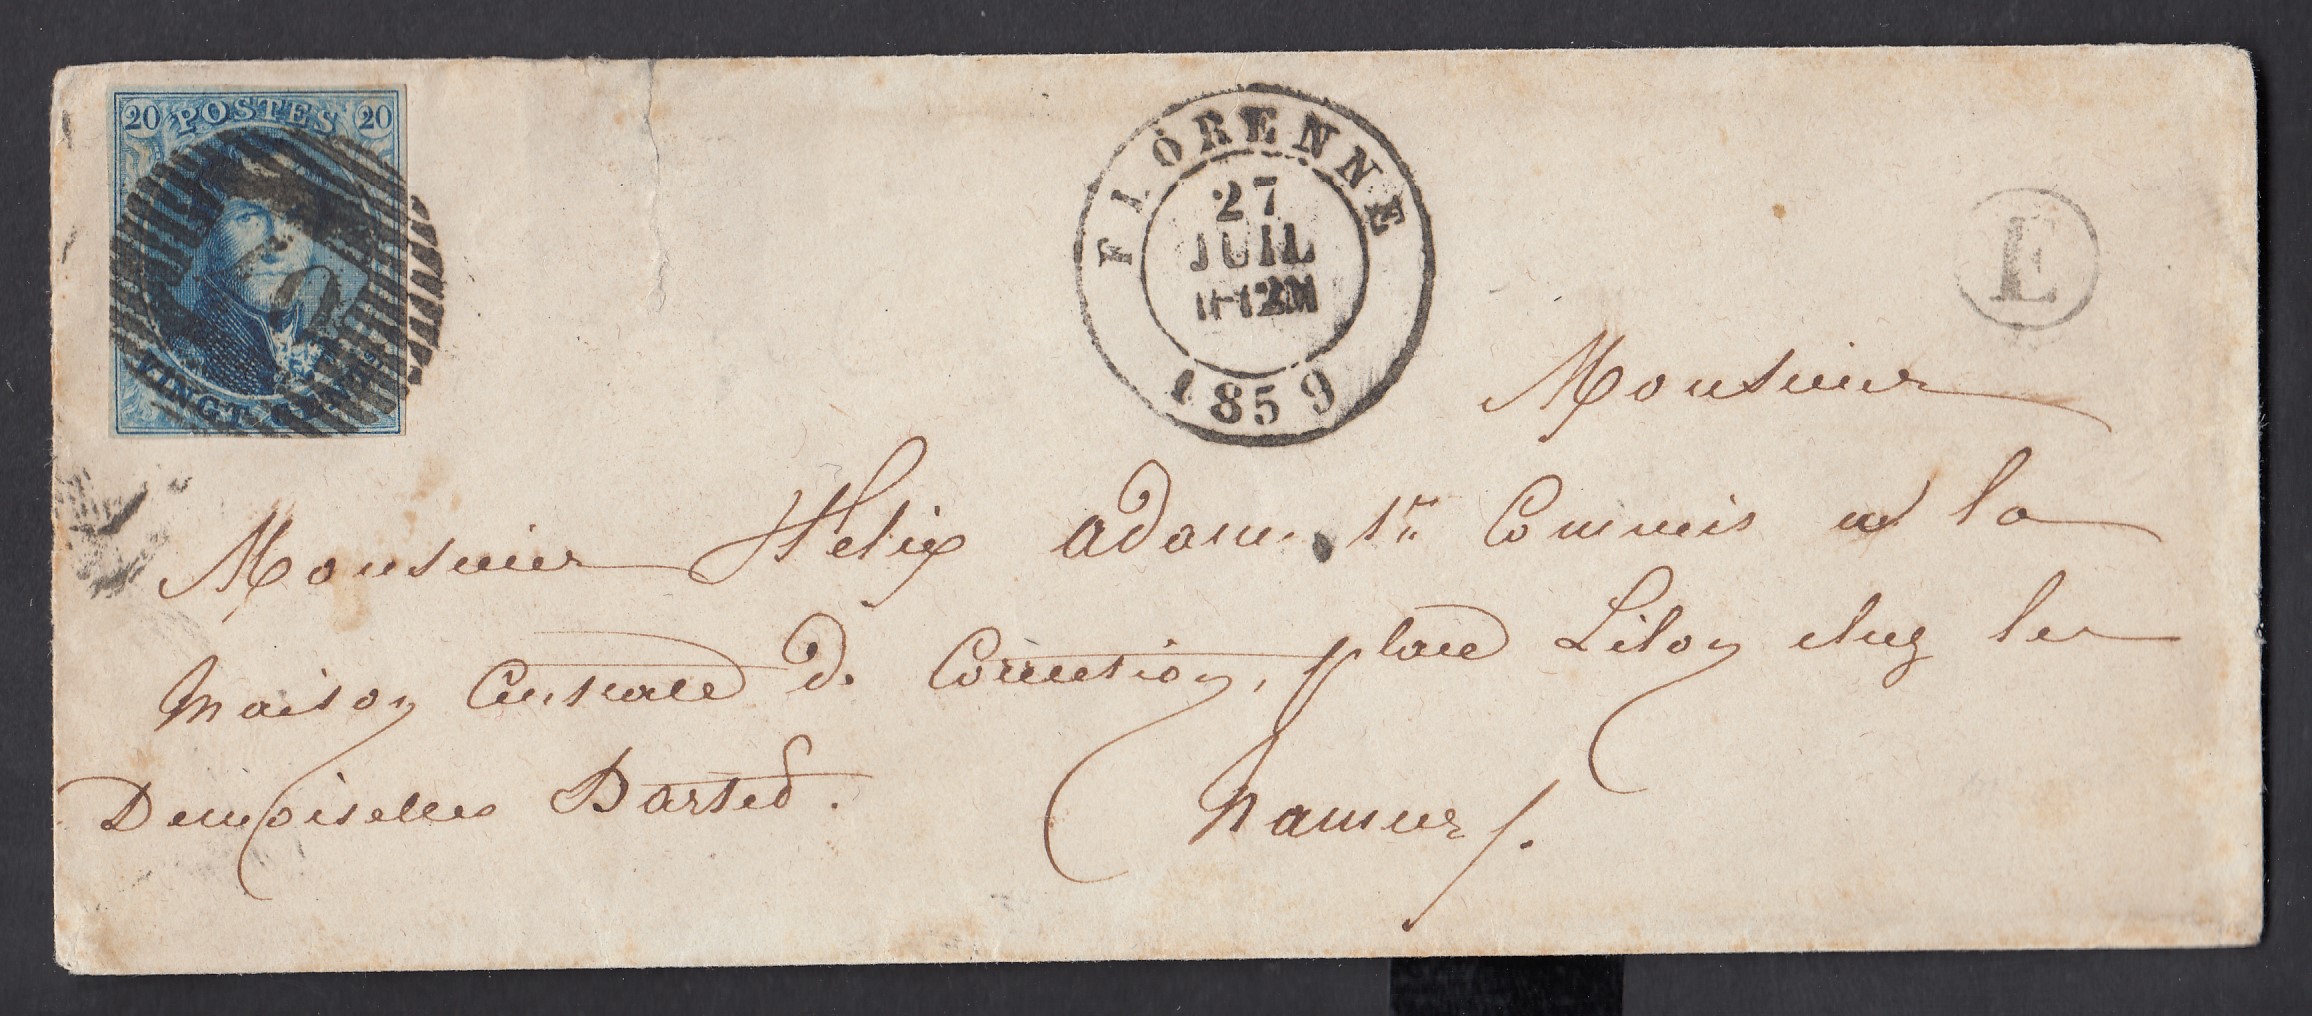 20 POSTES 20
VINGT CENT
FLORENNE
27
JUIL
11-12M
1859
E
Monsieur
Monsieur Félix Adam 1er Commis a la
Maison Centrale de Correction, place Lilon chez les
Demoiselles Barsed.
Namur /.